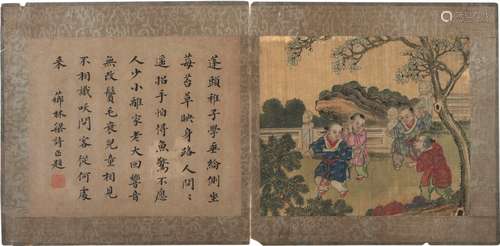 蓬頭稚子學垂綸側坐
莓苔草映身路人問〻
遥招手怕得魚驚不應
人少小離家老大回響音
無改鬢毛衰兒童相見
不相識咲問客從何處
来 薌林梁詩正題